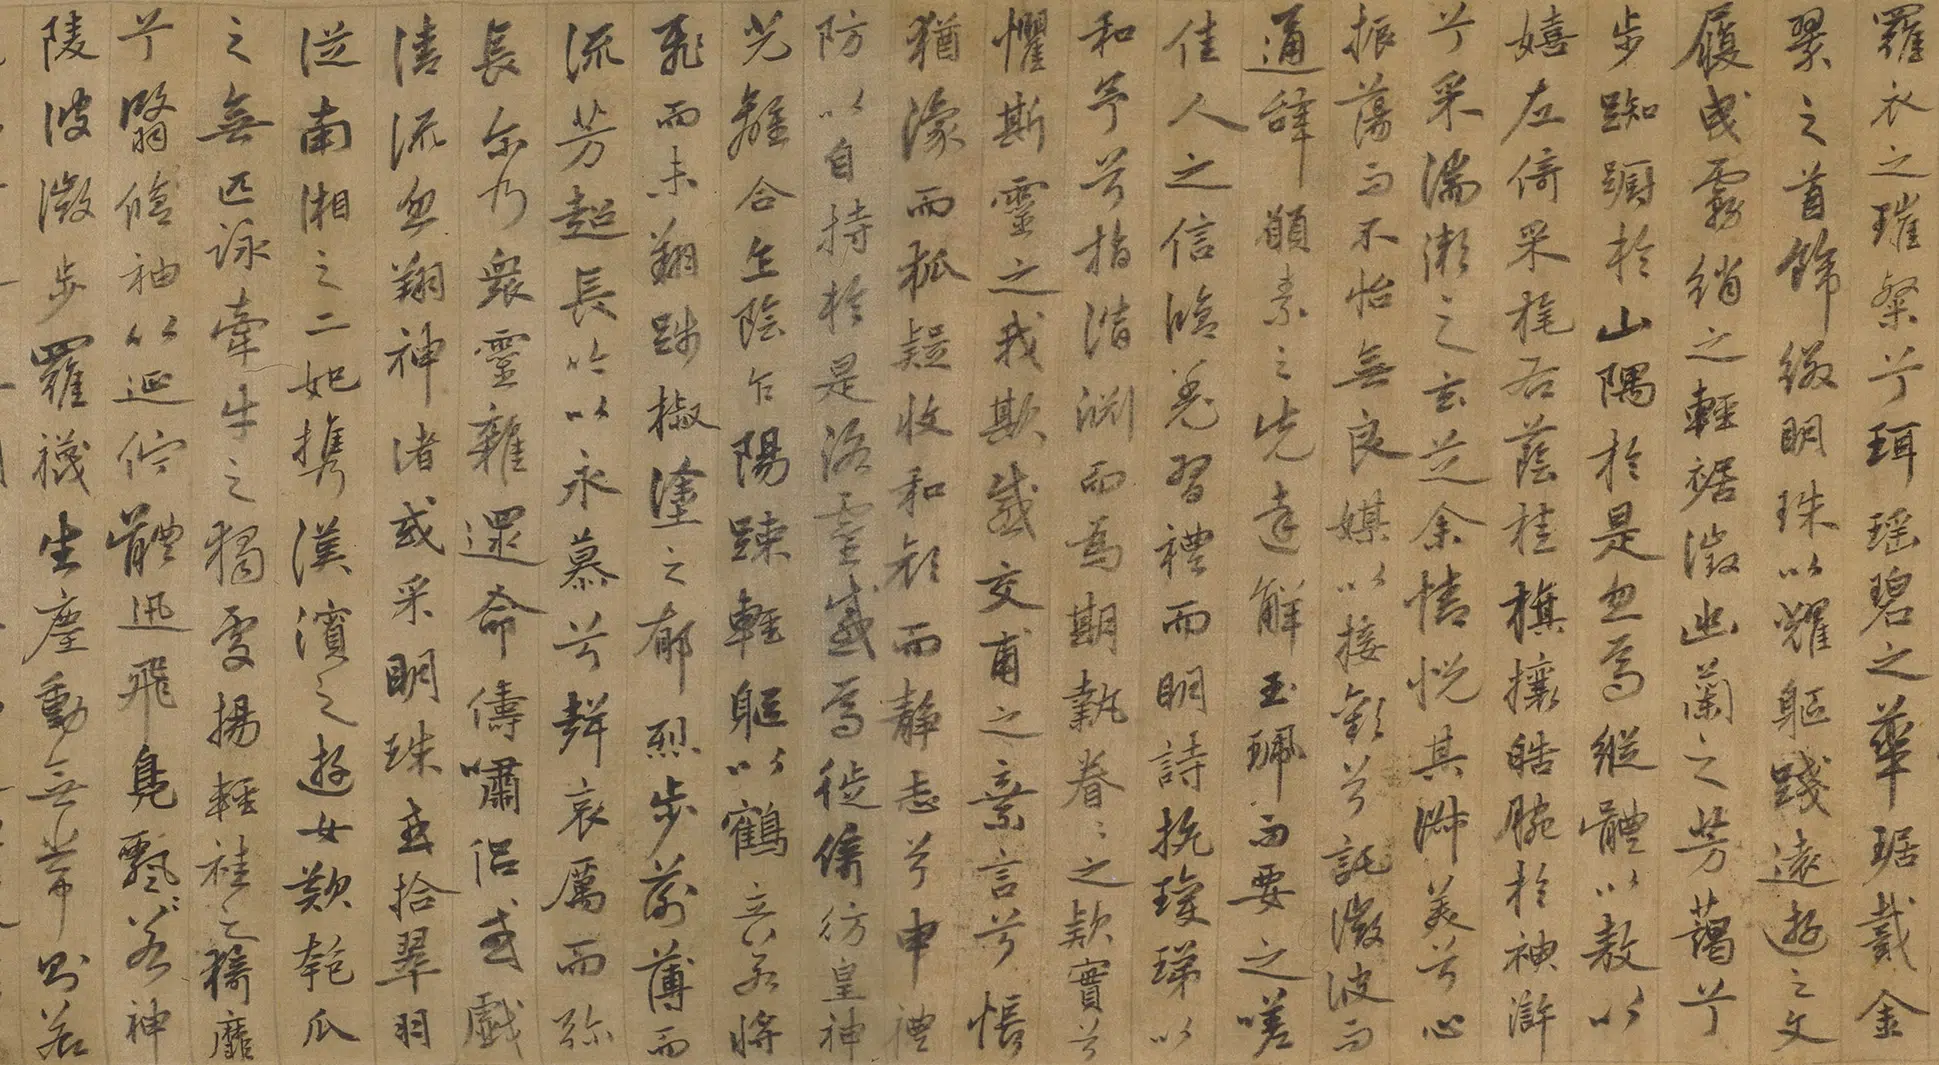 羅衣之璀粲兮珥瑶碧之華琚戴金
翠之首飾綴明珠以耀軀踐遠遊之文
履曳霧綃之輕裾微幽蘭之芳藹兮
步踟躕於山隅於是忽焉縱體以敖以
嬉左倚采旄右蔭桂旗攘皓腕於神滸
兮采湍瀨之玄芝余情悦其淋美兮心
振蕩而不怡無良媒以接歡兮託微波而
通辝願素之先達解玉珮而要之嗟
佳人之信脩羌習禮而明詩抗瓊珶以
和予兮指潛淵而為期執眷〻之款實兮
懼斯靈之我欺感交甫之棄言兮悵
猶濠而狐疑收和顔而静志兮申禮
防以自持於是洛靈感焉徙倚彷皇神
光離合乍陰乍陽踈輕軀以鶴立若將
飛而未翔踐椒塗之郁烈步蘅薄而
流芳超長吟以永慕兮聲哀厲而弥
長尓乃衆靈雜遝命儔嘯侣或戲
清流忽翔神渚或采明珠或拾翠羽
從南湘之二妃攜漢濱之遊女歎匏瓜
之無匹詠牽牛之獨處揚輕袿之猗靡
兮翳脩袖以延佇體迅飛鳧飄〻若神
陵波微步羅襪生塵動無常則若